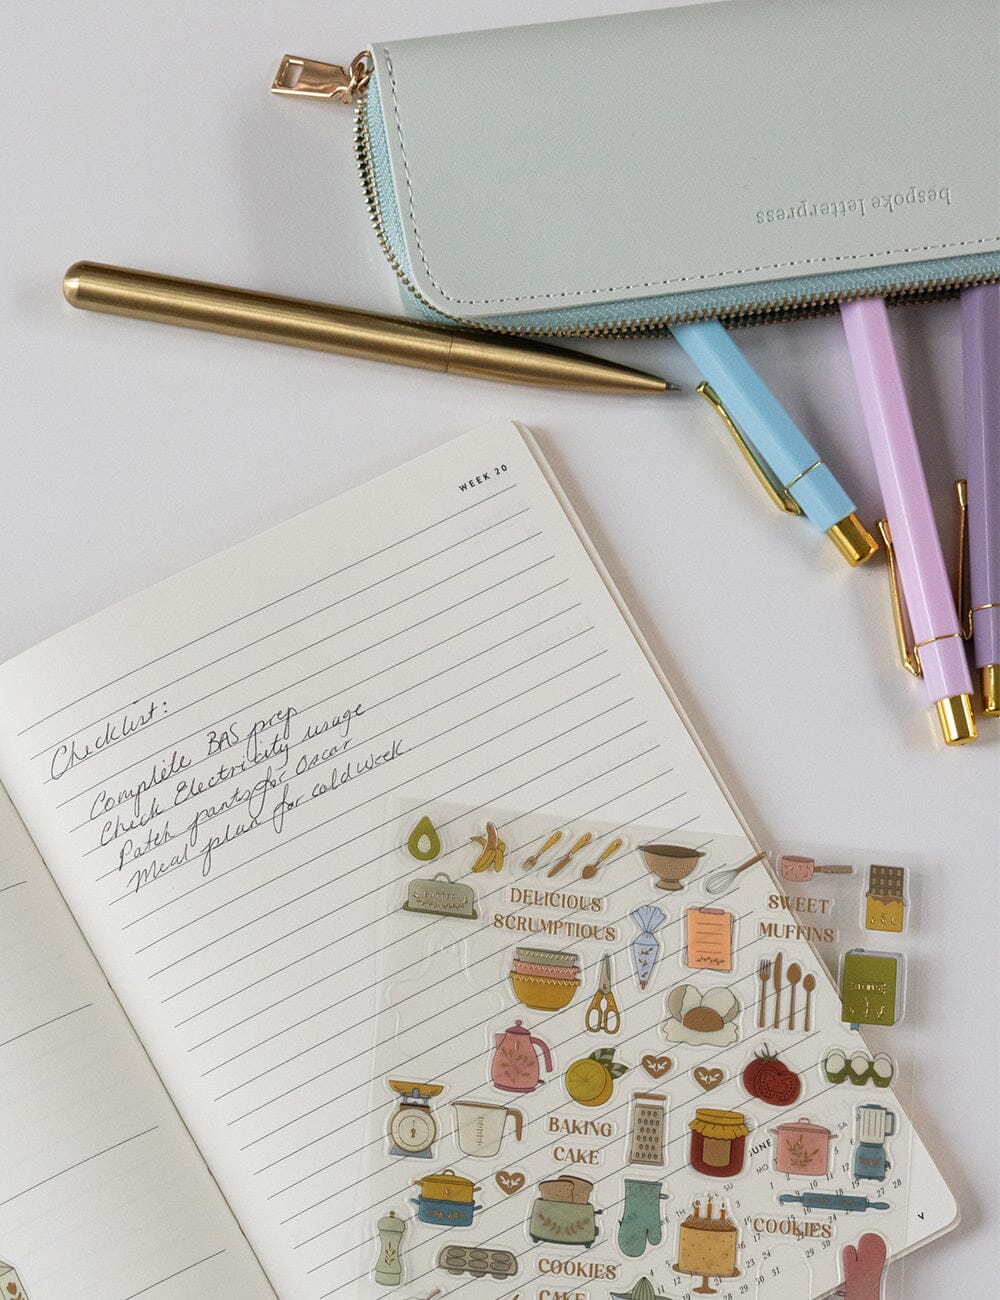 bespoke letterpress
WEEK 20
Checklist:
Complete BAS prep
Check Electricity usage
Patch pants for Oscar
Meal plan for cold week.
BUTTER
DELICIOUS
SCRUMPTIOUS
SWEET
MUFFINS
BAKING
CAKE
JUNE
SA
MO
SU
COOKIES
COOKIES
CAKE